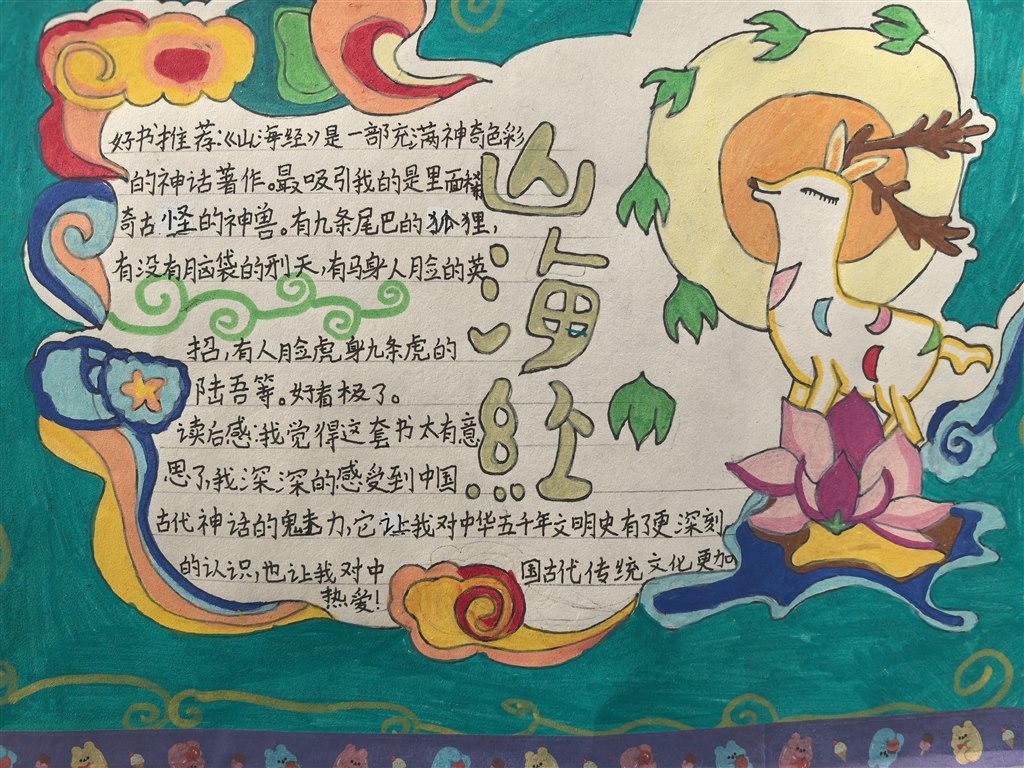 好书推荐:《山海经》是一部充满神奇色彩
的神话著作。最吸引我的是里面稀
奇古怪的神兽。有九条尾巴的狐狸,
有没有脑袋的刑天,有马身人脸的英
招,有人脸虎身九条虎的
陆吾等。好看极了。
读后感:我觉得这套书太有意
思了,我深深的感受到中国
古代神话的魅力,它让我对中华五千年文明史有了更深刻
的认识,也让我对中国古代传统文化更加
热爱!
山海经